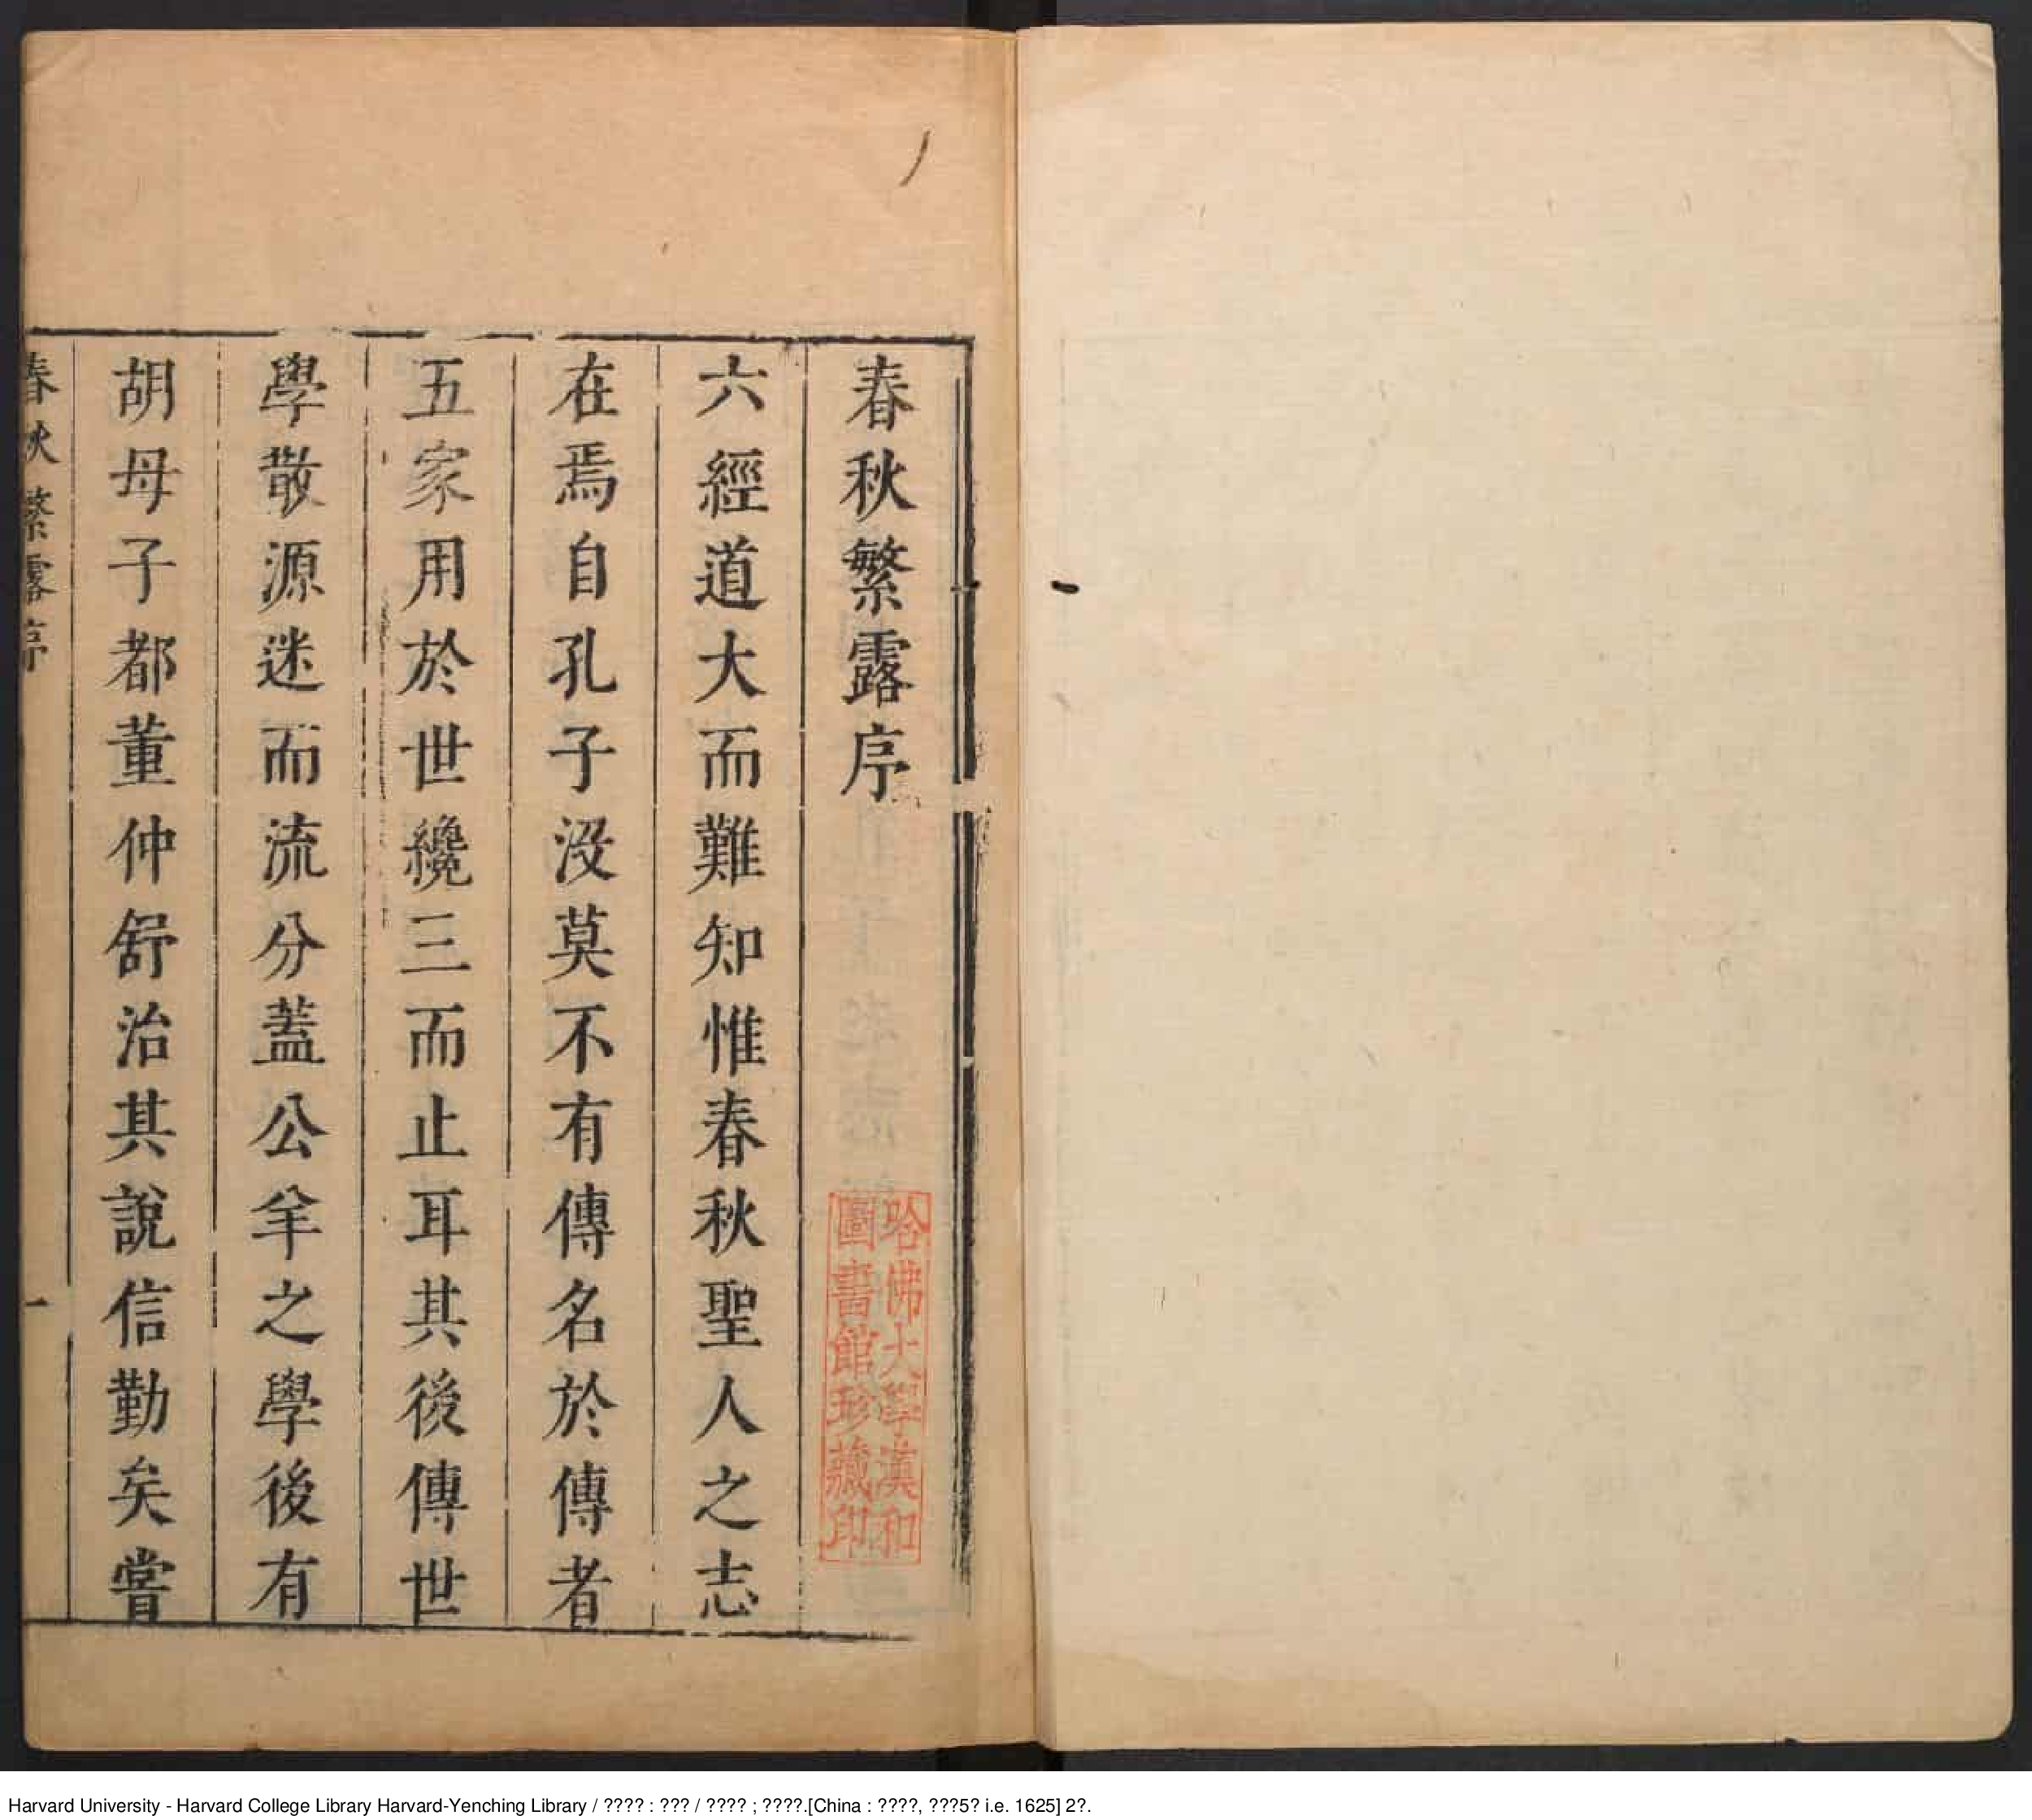 春秋繁露序
六經道大而難知惟春秋聖人之志
在焉自孔子沒莫不有傳名於傳者
五家用於世纔三而止耳其後傳世
學散源迷而流分蓋公羊之學後有
胡母子都董仲舒治其說信勤矣嘗
春秋繁露序
一
哈佛大學漢和
圖書館珍藏印
Harvard University - Harvard College Library Harvard-Yenching Library / ???? : ??? / ???? ; ????.[China : ????, ???5? i.e. 1625] 2?.